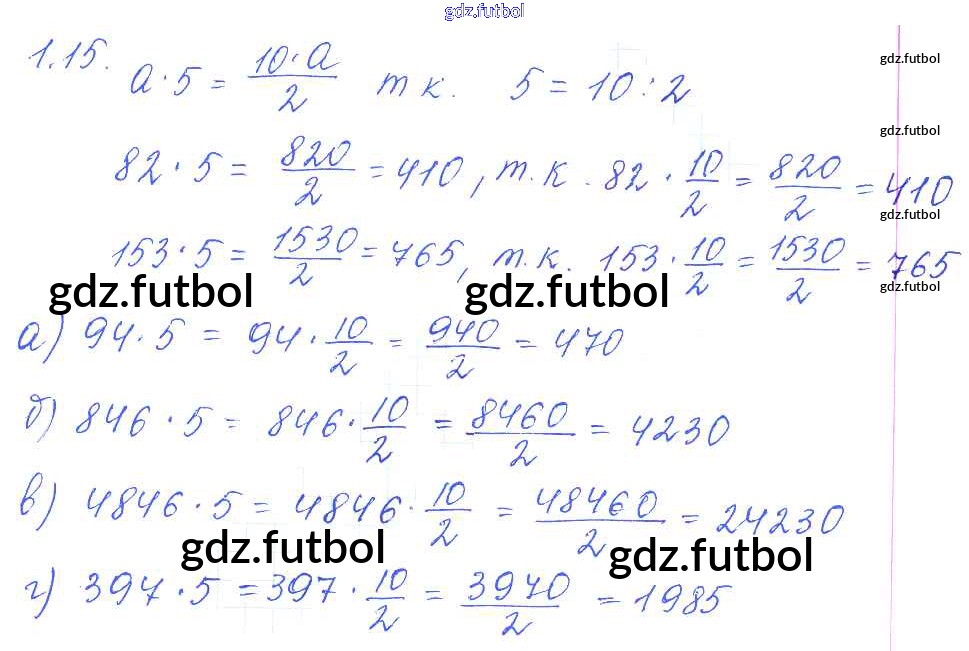 gdz.futbol
1.15. a·5 = 10·a/2 т к. 5 = 10:2
gdz.futbol
gdz.futbol
82·5 = 820/2 = 410, т.к. 82·10/2 = 820/2 = 410
gdz.futbol
153·5 = 1530/2 = 765, т.к. 153·10/2 = 1530/2 = 765
gdz.futbol gdz.futbol gdz.futbol
а) 94·5 = 94·10/2 = 940/2 = 470
б) 846·5 = 846·10/2 = 8460/2 = 4230
в) 4846·5 = 4846·10/2 = 48460/2 = 24230
gdz.futbol gdz.futbol
г) 397·5 = 397·10/2 = 3970/2 = 1985